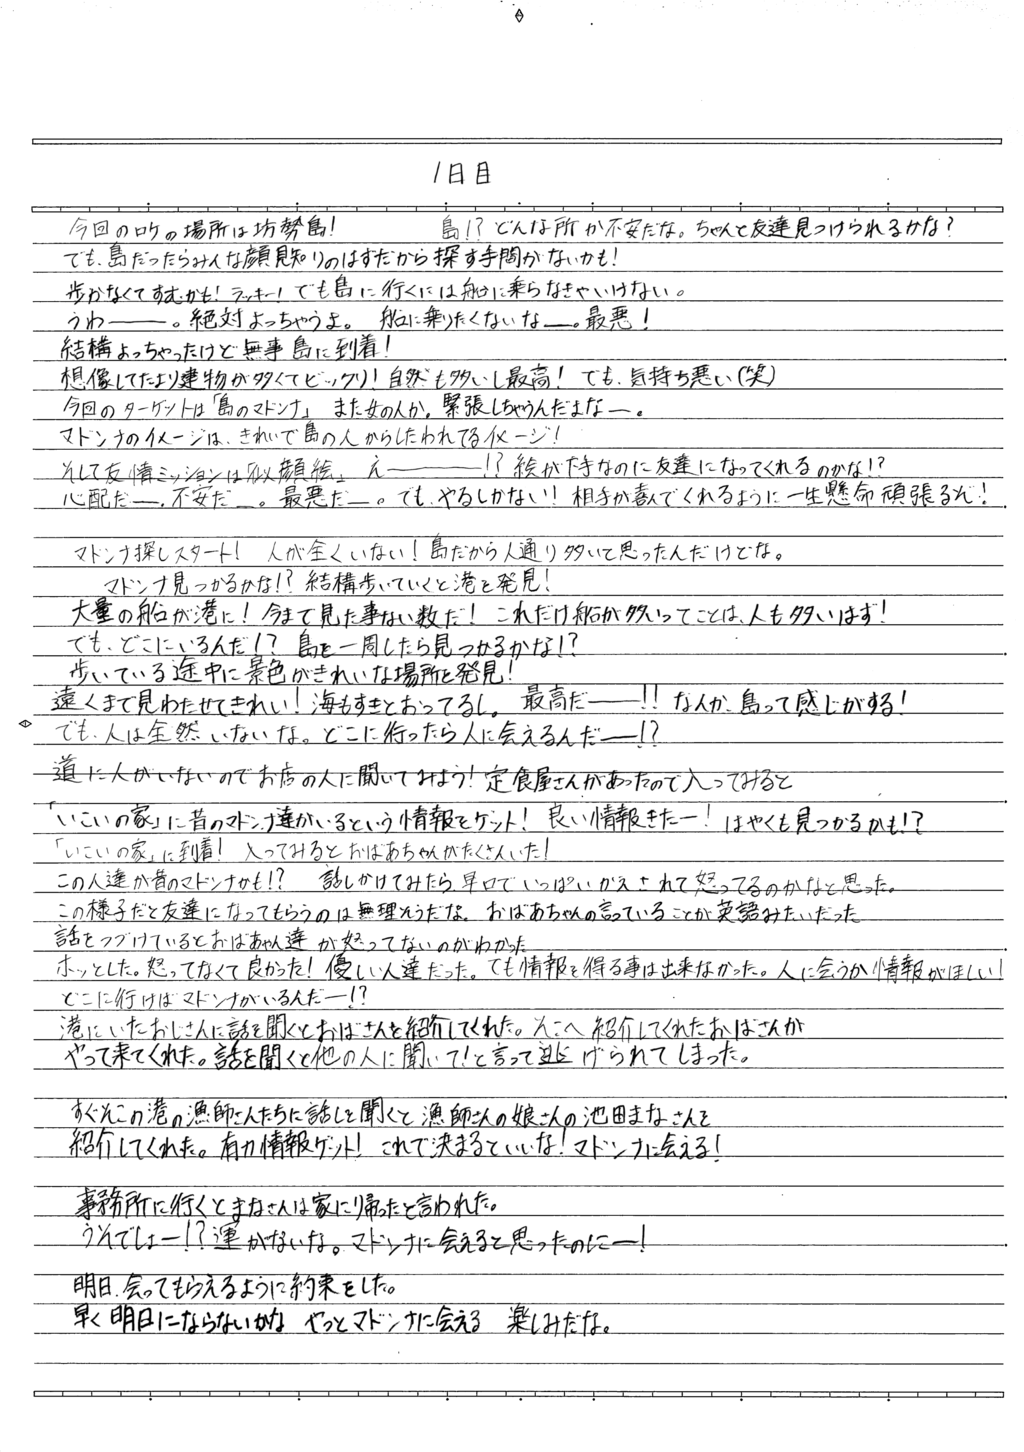 1日目
今回のロケの場所は坊勢島! 島!?どんな所か不安だな。ちゃんと友達見つけられるかな?
でも、島だったらみんな顔見知りのはずだから探す手間がないかも!
歩かなくてすむかも!ラッキー!でも島に行くには船に乗らなきゃいけない。
うわ――。絶対よっちゃうよ。船に乗りたくないな―。最悪!
結構よっちゃったけど無事島に到着!
想像してたより建物が多くてビックリ!自然も多いし最高!でも、気持ち悪い(笑)
今回のターゲットは「島のマドンナ」また女の人か。緊張しちゃうんだよな―。
マドンナのイメージは、きれいで島の人からしたわれてるイメージ!
そして友情ミッションは「似顔絵」え―――!?絵が下手なのに友達になってくれるのかな!?
心配だ―。不安だ―。最悪だ―。でも、やるしかない!!相手が喜んでくれるように一生懸命頑張るぞ!
マドンナ探しスタート!人が全くいない!島だから人通り多いと思ったんだけどな。
マドンナ見つかるかな!?結構歩いていくと港を発見!
大量の船が港に!今まで見た事ない数だ!これだけ船が多いってことは、人も多いはず!
でも、どこにいるんだ!?島を一周したら見つかるかな!?
歩いている途中に景色がきれいな場所を発見!
遠くまで見わたせてきれい!海もすきとおってるし。最高だ――!!なんか、島って感じがする!
でも、人は全然いないな。どこに行ったら人に会えるんだ―!?
道に人がいないのでお店の人に聞いてみよう!定食屋さんがあったので入ってみると
「いこいの家」に昔のマドンナ達がいるという情報をゲット!良い情報きたー!はやくも見つかるかも!?
「いこいの家」に到着!入ってみるとおばあちゃんがたくさんいた!
この人達が昔のマドンナかも!?話しかけてみたら早口でいっぱいかえされて怒ってるのかなと思った。
この様子だと友達になってもらうのは無理そうだな。おばあちゃんの言っていることが英語みたいだった
話をつづけているとおばあゃん達が怒ってないのがわかった
ホッとした。怒ってなくて良かった!優しい人達だった。でも情報を得る事は出来なかった。人に会うか情報がほしい!
どこに行けばマドンナがいるんだー!?
港にいたおじさんに話を聞くとおばさんを紹介してくれた。そこへ紹介してくれたおばさんが
やって来てくれた。話を聞くと他の人に聞いて!と言って逃げられてしまった。
すぐそこの港の漁師さんたちに話しを聞くと漁師さんの娘さんの池田まなさんを
紹介してくれた。有力情報ゲット!これで決まるといいな!マドンナに会える!
事務所に行くとまなさんは家に帰ったと言われた。
うそでしょー!?運がないな。マドンナに会えると思ったのにー!
明日、会ってもらえるように約束をした。
早く明日にならないかな やっとマドンナに会える 楽しみだな。